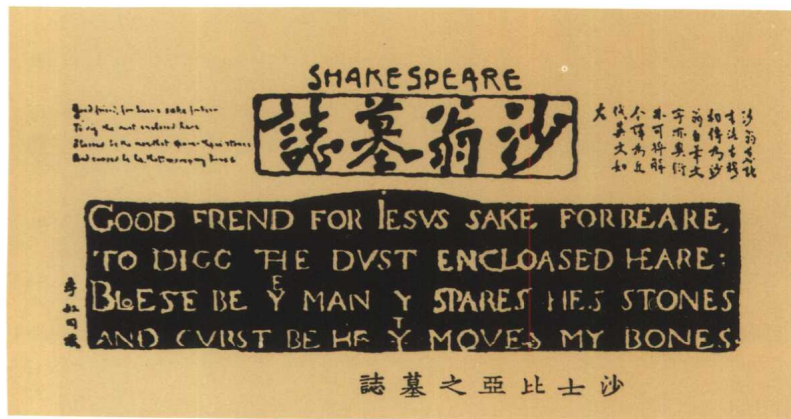 SHAKESPEARE
沙翁墓誌
Good friend, for Iesus sake forbear
To dig the dust enclosed here
Blessed be the man that spares these stones
And cursed be he that moves my bones
書法古樸
相傳為沙
翁自筆文
字亦奧衍
代英文如
GOOD FREND FOR IESVS SAKE FORBEARE,
TO DIGG THE DVST ENCLOASED HEARE:
BLESE BE Yᴱ MAN Y SPARES THES STONES
AND CVRST BE HE Yᵀ MOVES MY BONES.
沙士比亞之墓誌